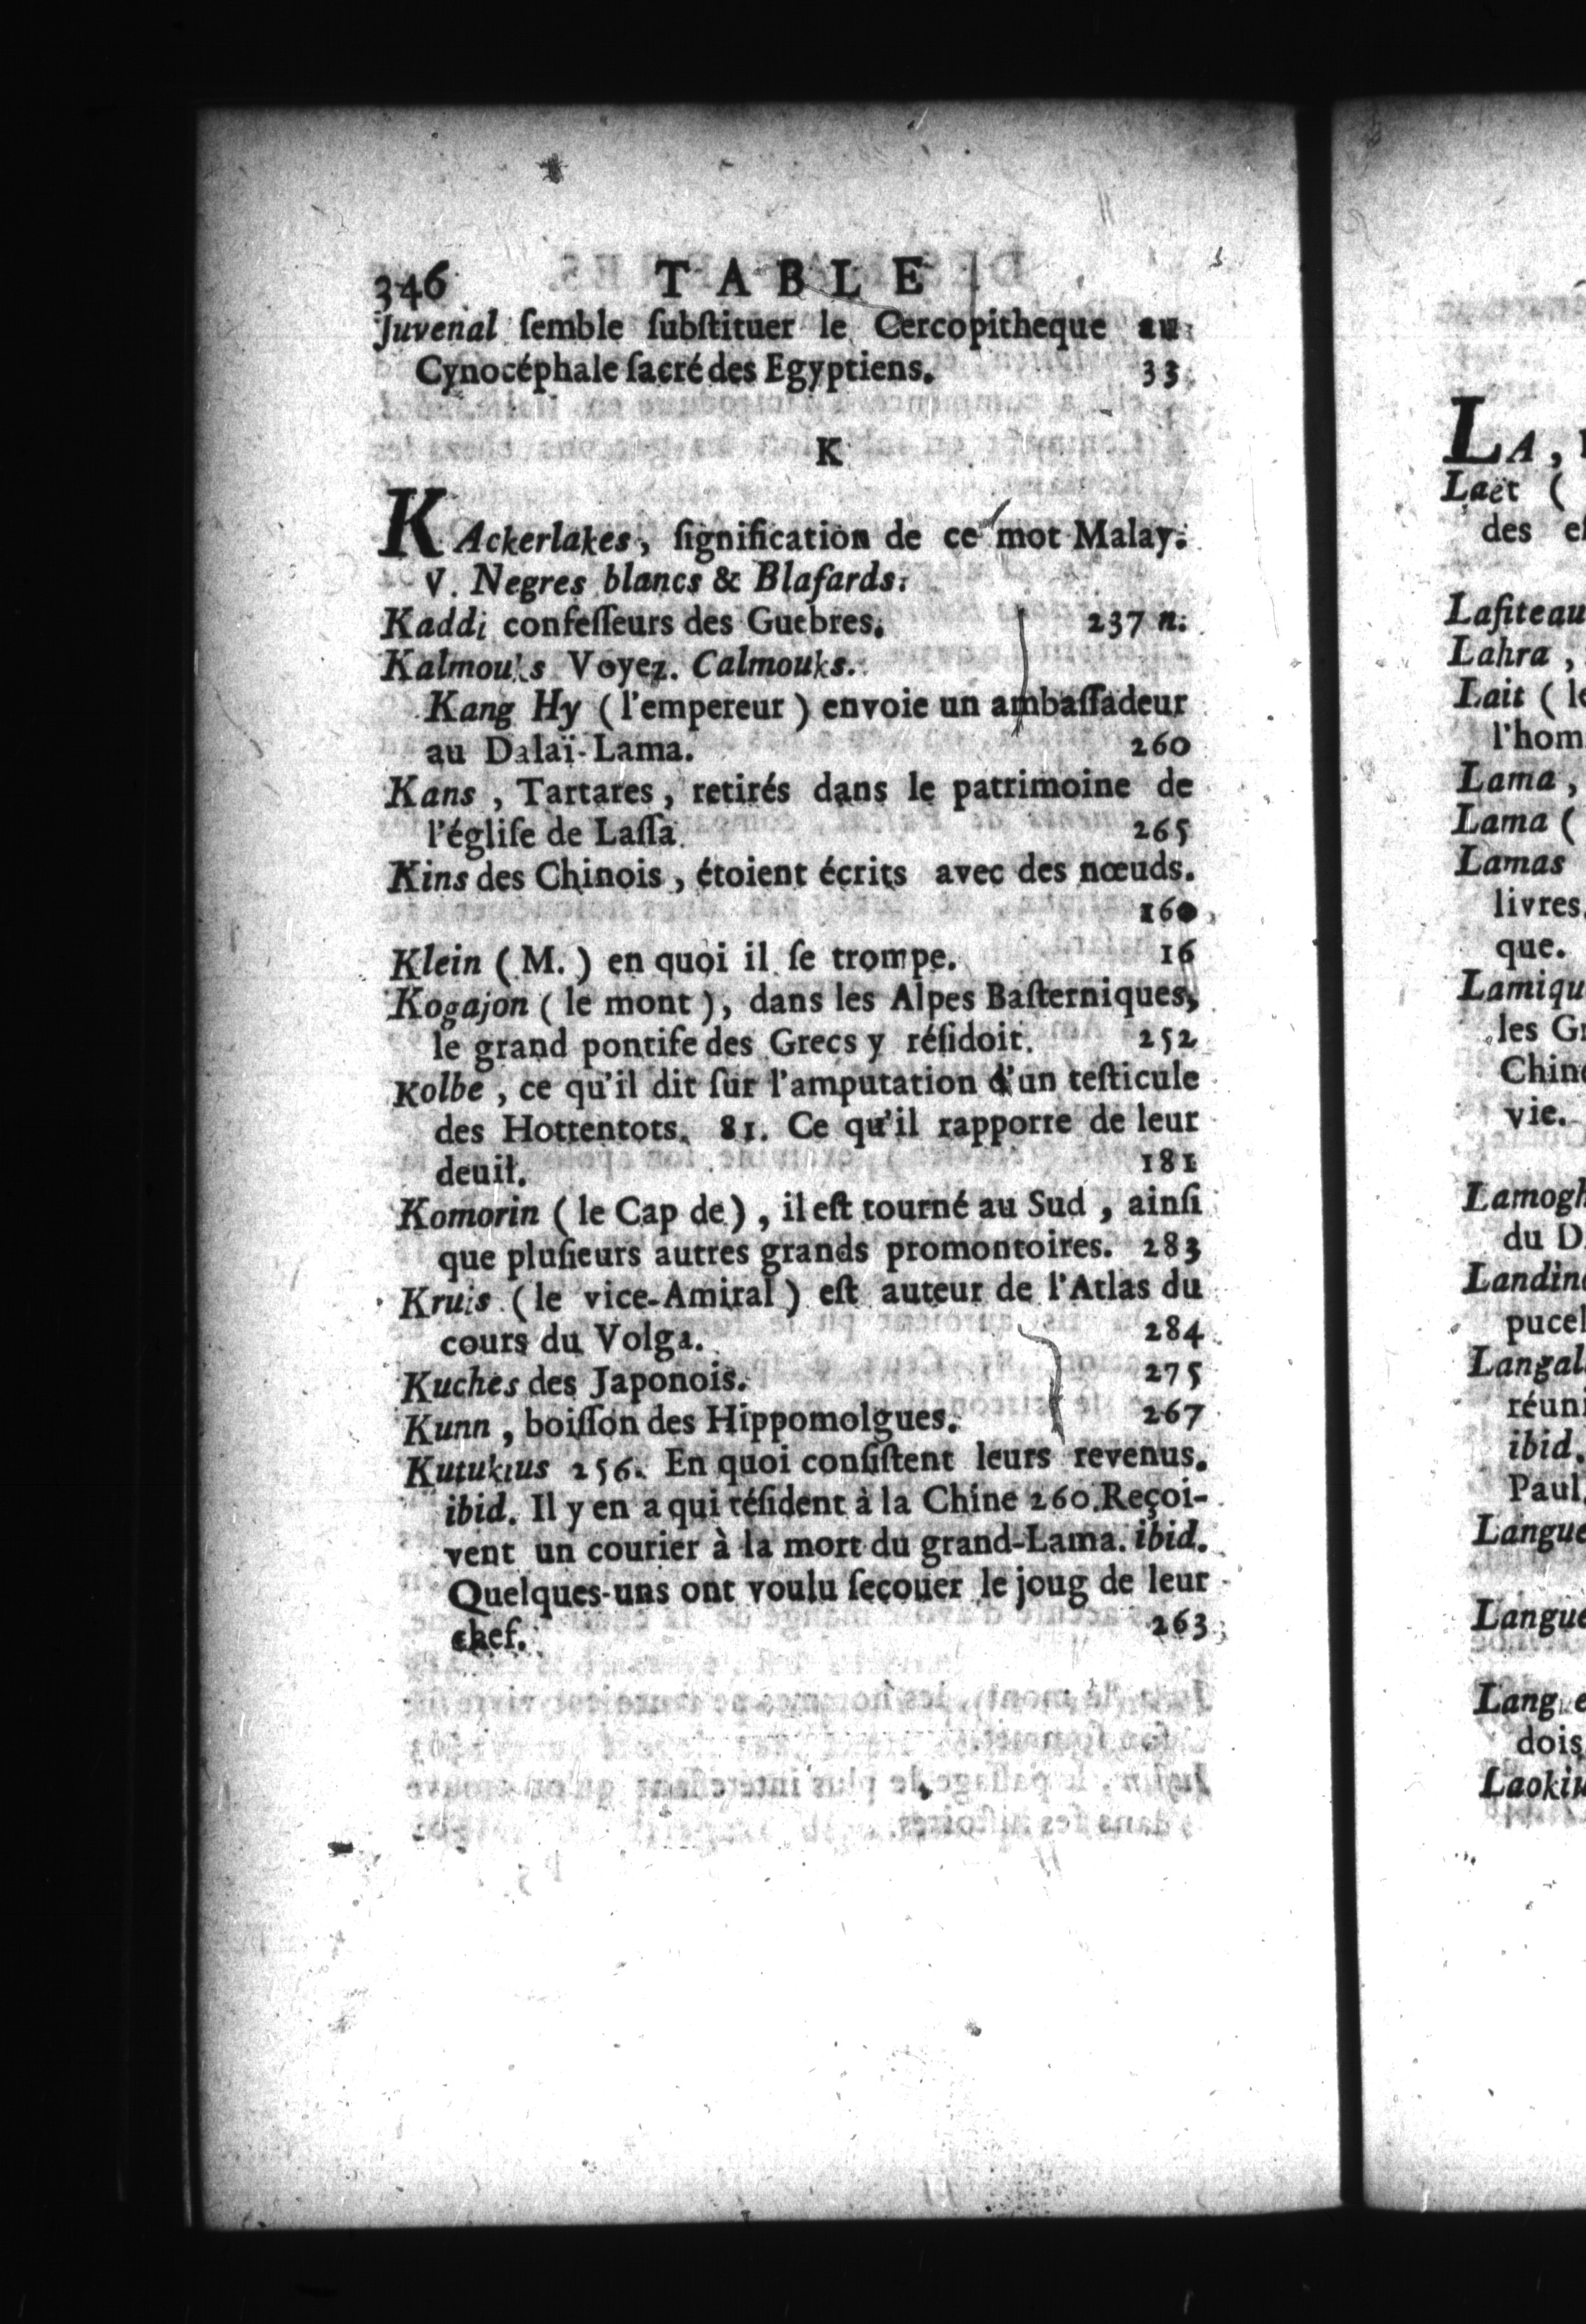 346 TABLE
Juvenal ſemble ſubſtituer le Cercopitheque au
Cynocéphale ſacré des Egyptiens. 33
K
KAckerlakes, ſignification de ce mot Malay.
V. Negres blancs & Blafards.
Kaddi confeſſeurs des Guebres. 237 n.
Kalmouks Voyez. Calmouks.
Kang Hy (l'empereur) envoie un ambaſſadeur
au Dalaï-Lama. 260
Kans, Tartares, retirés dans le patrimoine de
l'égliſe de Laſſa. 265
Kins des Chinois, étoient écrits avec des nœuds.
160
Klein (M.) en quoi il ſe trompe. 16
Kogajon (le mont), dans les Alpes Baſterniques,
le grand pontife des Grecs y réſidoit. 252
Kolbe, ce qu'il dit ſur l'amputation d'un teſticule
des Hottentots. 81. Ce qu'il rapporte de leur
deuil. 181
Komorin (le Cap de), il eſt tourné au Sud, ainſi
que pluſieurs autres grands promontoires. 283
Kruis (le vice-Amiral) eſt auteur de l'Atlas du
cours du Volga. 284
Kuches des Japonois. 275
Kunn, boiſſon des Hippomolgues. 267
Kutuktus 256. En quoi conſiſtent leurs revenus.
ibid. Il y en a qui réſident à la Chine 260. Reçoi-
vent un courier à la mort du grand-Lama. ibid.
Quelques-uns ont voulu ſecouer le joug de leur
chef. 263
LA,
Laët (
des
Lafiteau
Lahra,
Lait (
l'hom
Lama,
Lama (
Lamas
livres.
que.
Lamiqu
les G
Chin
vie.
Lamogh
du D
Landin
pucel
Langal
réuni
ibid.
Paul.
Langue
Langue
Lang
dois
Laoki